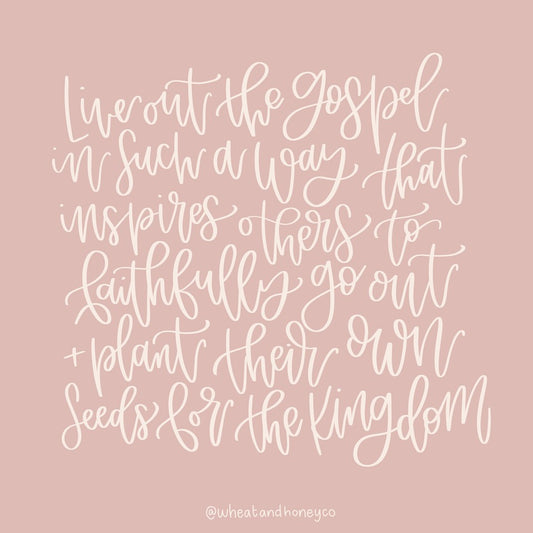 Live out the gospel
in such a way that
inspires others to
faithfully go out
+ plant their own
seeds for the Kingdom
@wheatandhoneyco